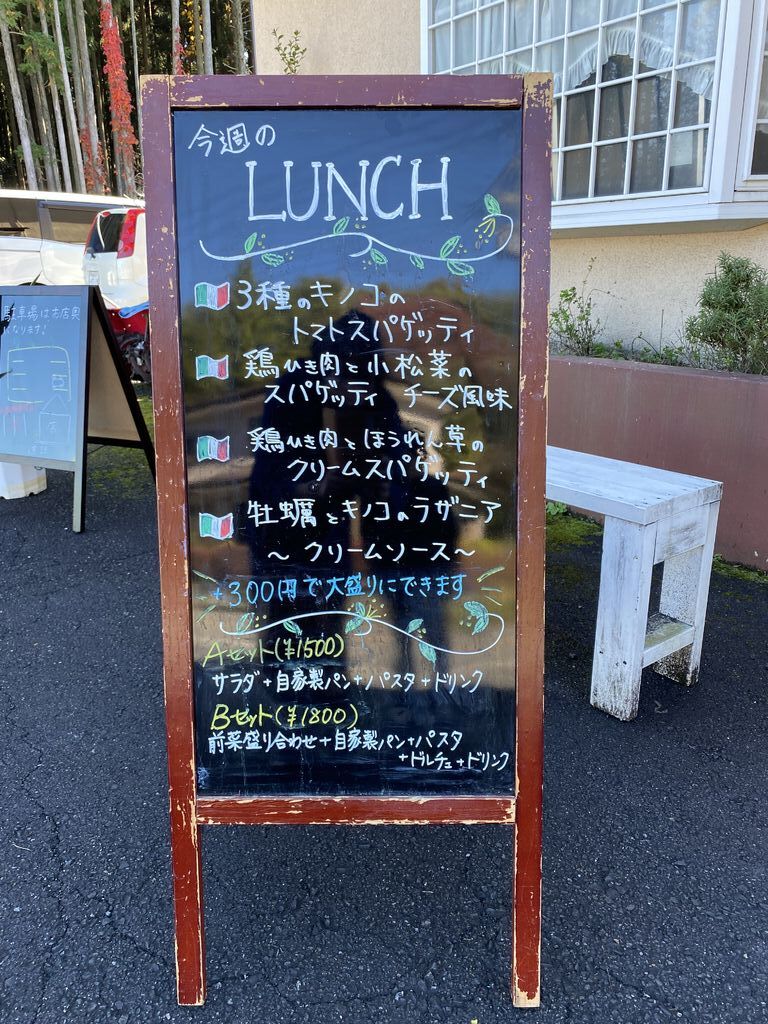 今週の
LUNCH
3種のキノコの
トマトスパゲッティ
鶏ひき肉と小松菜の
スパゲッティ チーズ風味
鶏ひき肉とほうれん草の
クリームスパゲッティ
牡蠣とキノコのラザニア
〜クリームソース〜
+300円で大盛りにできます
Aセット(¥1500)
サラダ+自家製パン+パスタ+ドリンク
Bセット(¥1800)
前菜盛り合わせ+自家製パン+パスタ
+ドルチェ+ドリンク
駐車場はお店奥
になります!